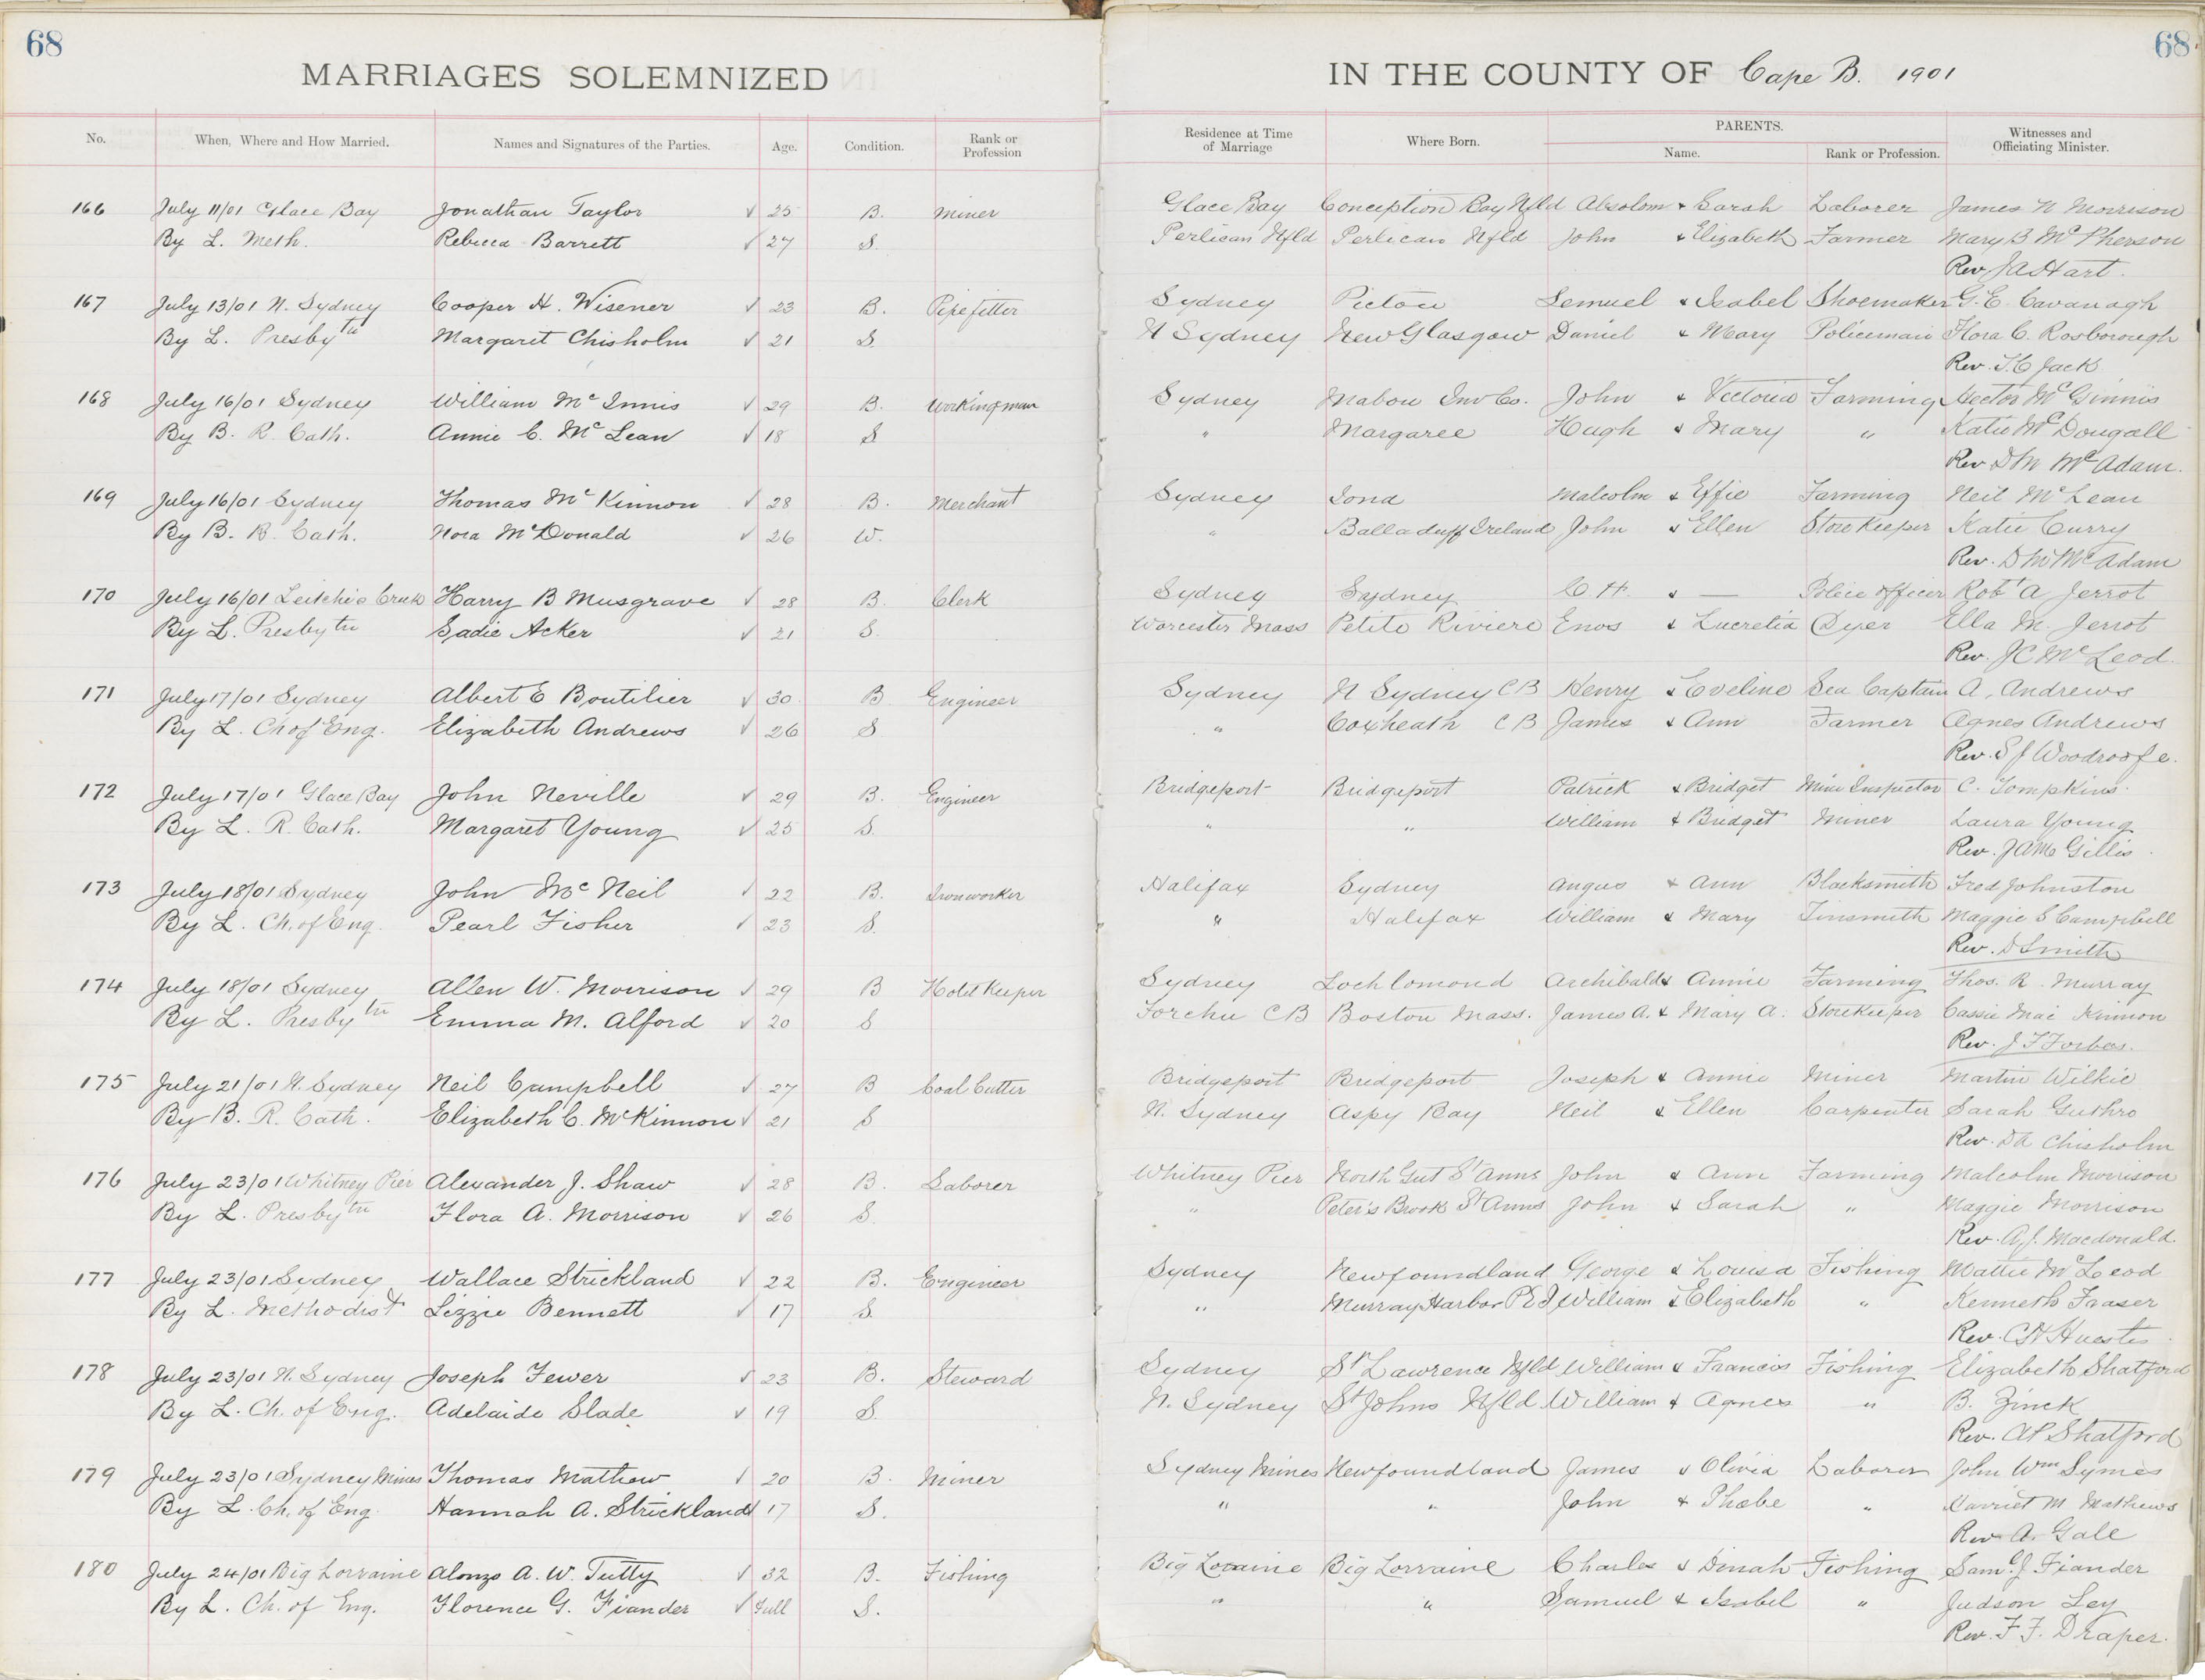 68
68
MARRIAGES SOLEMNIZED
IN THE COUNTY OF Cape B. 1901
No. When, Where and How Married. Names and Signatures of the Parties. Age. Condition. Rank or Profession Residence at Time of Marriage Where Born. PARENTS. Name. Rank or Profession. Witnesses and Officiating Minister.
166 July 11/01 Glace Bay Jonathan Taylor ✓ 25 B. Miner Glace Bay Conception Bay Nfld Absolom & Sarah Laborer James N Morrison
By L. Meth. Rebecca Barrett ✓ 27 S. Perlican Nfld Perlican Nfld John & Elizabeth Farmer Mary B McPherson
Rev JA Hart.
167 July 13/01 N. Sydney Cooper H. Wisener ✓ 23 B. Pipefitter Sydney Pictou Lemuel & Isabel Shoemaker G. E. Cavanagh
By L. Presbytn Margaret Chisholm ✓ 21 S. N Sydney New Glasgow Daniel & Mary Policeman Flora C. Rosborough
Rev. T. C Jack
168 July 16/01 Sydney William McInnis ✓ 29 B. Workingman Sydney Mabou Inv Co. John & Victoria Farming Hector McGinnis
By B. R. Cath. Annie C. McLean ✓ 18 S " Margaree Hugh & Mary " Katie McDougall
Rev DM McAdam.
169 July 16/01 Sydney Thomas McKinnon ✓ 28 B. Merchant Sydney Iona Malcolm & Effie Farming Neil McLean
By B. R. Cath. Nora McDonald ✓ 26 W. " Balladuff Ireland John & Ellen Storekeeper Katie Curry
Rev. DM McAdam
170 July 16/01 Leitchs Creek Harry B Musgrave ✓ 28 B. Clerk Sydney Sydney C H. & — Police Officer Robt A Jerrot
By L. Presbytn Sadie Acker ✓ 21 S. Worcester Mass Petite Riviere Enos & Lucretia Dyer Ella M. Jerrot
Rev. JC McLeod.
171 July 17/01 Sydney Albert E Boutilier ✓ 30 B Engineer Sydney N Sydney CB Henry & Eveline Sea Captain A. Andrews
By L. Ch of Eng. Elizabeth Andrews ✓ 26 S " Coxheath CB James & Ann Farmer Agnes Andrews
Rev. S J Woodroofe.
172 July 17/01 Glace Bay John Neville ✓ 29 B. Engineer Bridgeport Bridgeport Patrick & Bridget Mine Inspector C. Tompkins.
By L. R. Cath. Margaret Young ✓ 25 S. " " William & Bridget Miner Laura Young
Rev. JAM Gillis.
173 July 18/01 Sydney John McNeil ✓ 22 B. Ironworker Halifax Sydney Angus & Ann Blacksmith Fred Johnston
By L. Ch. of Eng. Pearl Fisher ✓ 23 S. " Halifax William & Mary Tinsmith Maggie S Campbell
Rev. D Smith
174 July 18/01 Sydney Allen W. Morrison ✓ 29 B Hotel Keeper Sydney Loch Lomond Archibald & Annie Farming Thos. R. Murray
By L. Presbytn Emma M. Alford ✓ 20 S Forchu CB Boston Mass. James A. & Mary A. Storekeeper Cassie MacKinnon
Rev. J F Forbes.
175 July 21/01 N. Sydney Neil Campbell ✓ 27 B Coal Cutter Bridgeport Bridgeport Joseph & Annie Miner Martin Wilkie
By B. R. Cath. Elizabeth C. McKinnon ✓ 21 S N. Sydney Aspy Bay Neil & Ellen Carpenter Sarah Guthro
Rev. DA Chisholm
176 July 23/01 Whitney Pier Alexander J. Shaw ✓ 28 B. Laborer Whitney Pier North Gut St Anns John & Ann Farming Malcolm Morrison
By L. Presbytn Flora A. Morrison ✓ 26 S. " Peter's Brook St Anns John & Sarah " Maggie Morrison
Rev. A. J. Macdonald.
177 July 23/01 Sydney Wallace Strickland ✓ 22 B. Engineer Sydney Newfoundland George & Louisa Fishing Mattie McLeod
By L. Methodist Lizzie Bennett ✓ 17 S. " Murray Harbor PEI William & Elizabeth " Kenneth Fraser
Rev. CH Huestis
178 July 23/01 N. Sydney Joseph Fewer ✓ 23 B. Steward Sydney St Lawrence Nfld William & Francis Fishing Elizabeth Shatford
By L. Ch. of Eng. Adelaide Slade ✓ 19 S. N. Sydney St Johns Nfld William & Agnes " B. Zinck
Rev. AP Shatford
179 July 23/01 Sydney Mines Thomas Mathew ✓ 20 B. Miner Sydney Mines Newfoundland James & Olivia Laborer John Wm Symes
By L. Ch. of Eng. Hannah A. Strickland ✓ 17 S. " " John & Phebe " Harriet M Mathews
Rev A. Gale
180 July 24/01 Big Lorraine Alonzo A. W. Tutty ✓ 32 B. Fishing Big Loraine Big Lorraine Charles & Dinah Fishing Saml J Fiander
By L. Ch. of Eng. Florence G. Fiander ✓ Full S. " " Samuel & Isabel " Judson Ley
Rev. F F. Draper.